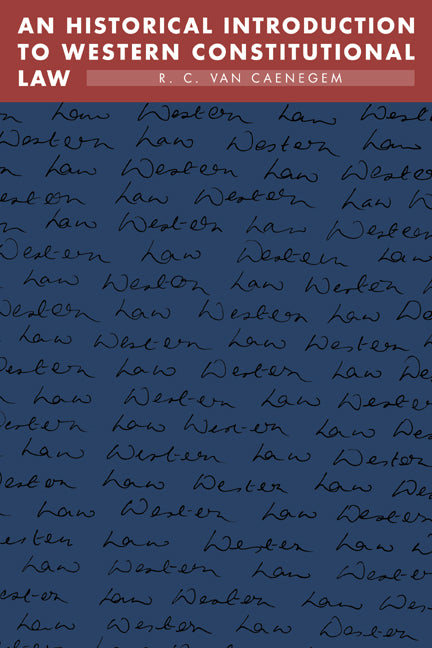 AN HISTORICAL INTRODUCTION
TO WESTERN CONSTITUTIONAL
LAW R. C. VAN CAENEGEM
Law Western Law
Western Law Western Law
Law Western Law Western
Western Law Western Law
Law Western Law Western
Western Law Western Law
Law Western Law Western
Western Law Western Law
Law Western Law Western
Western Law Western Law
Law Western Law Western
Western Law Western Law
Law Western Law Western
Western Law Western Law
Law Western Law Western
Western Law Western Law
Law Western Law Western
Western Law Western
Law Western Law